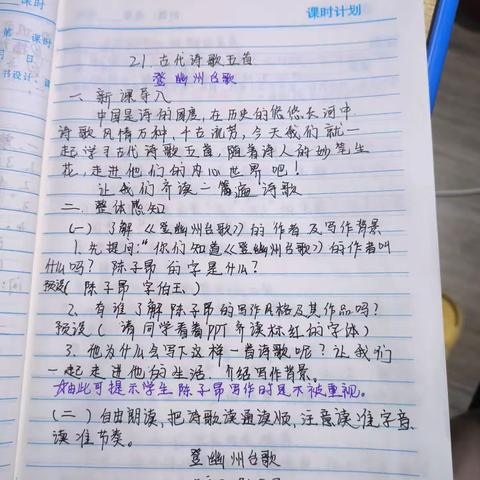 课时计划
课时
第 课时
月 日
书设计
21.古代诗歌五首
登幽州台歌
一、新课导入
中国是诗的国度,在历史的悠悠长河中
诗歌风情万种,千古流芳,今天我们就一
起学习古代诗歌五首,随着诗人的妙笔生
花,走进他们的内心世界吧!
让我们齐读一篇遍诗歌
二、整体感知
(一)了解《登幽州台歌》的作者及写作背景
1.先提问:“你们知道《登幽州台歌》的作者叫
什么吗?陈子昂的字是什么?
预设(陈子昂 字伯玉)
2.有谁了解陈子昂的写作风格及其作品吗?
预设(请同学看着PPT齐读标红的字体)
3.他为什么会写下这样一首诗歌呢?让我们
一起走进他的生活.介绍写作背景。
如此可提示学生陈子昂写作时是不被重视。
(二)自由朗读,把诗歌读通读顺,注意读准字音
读准节奏。
登幽州台歌